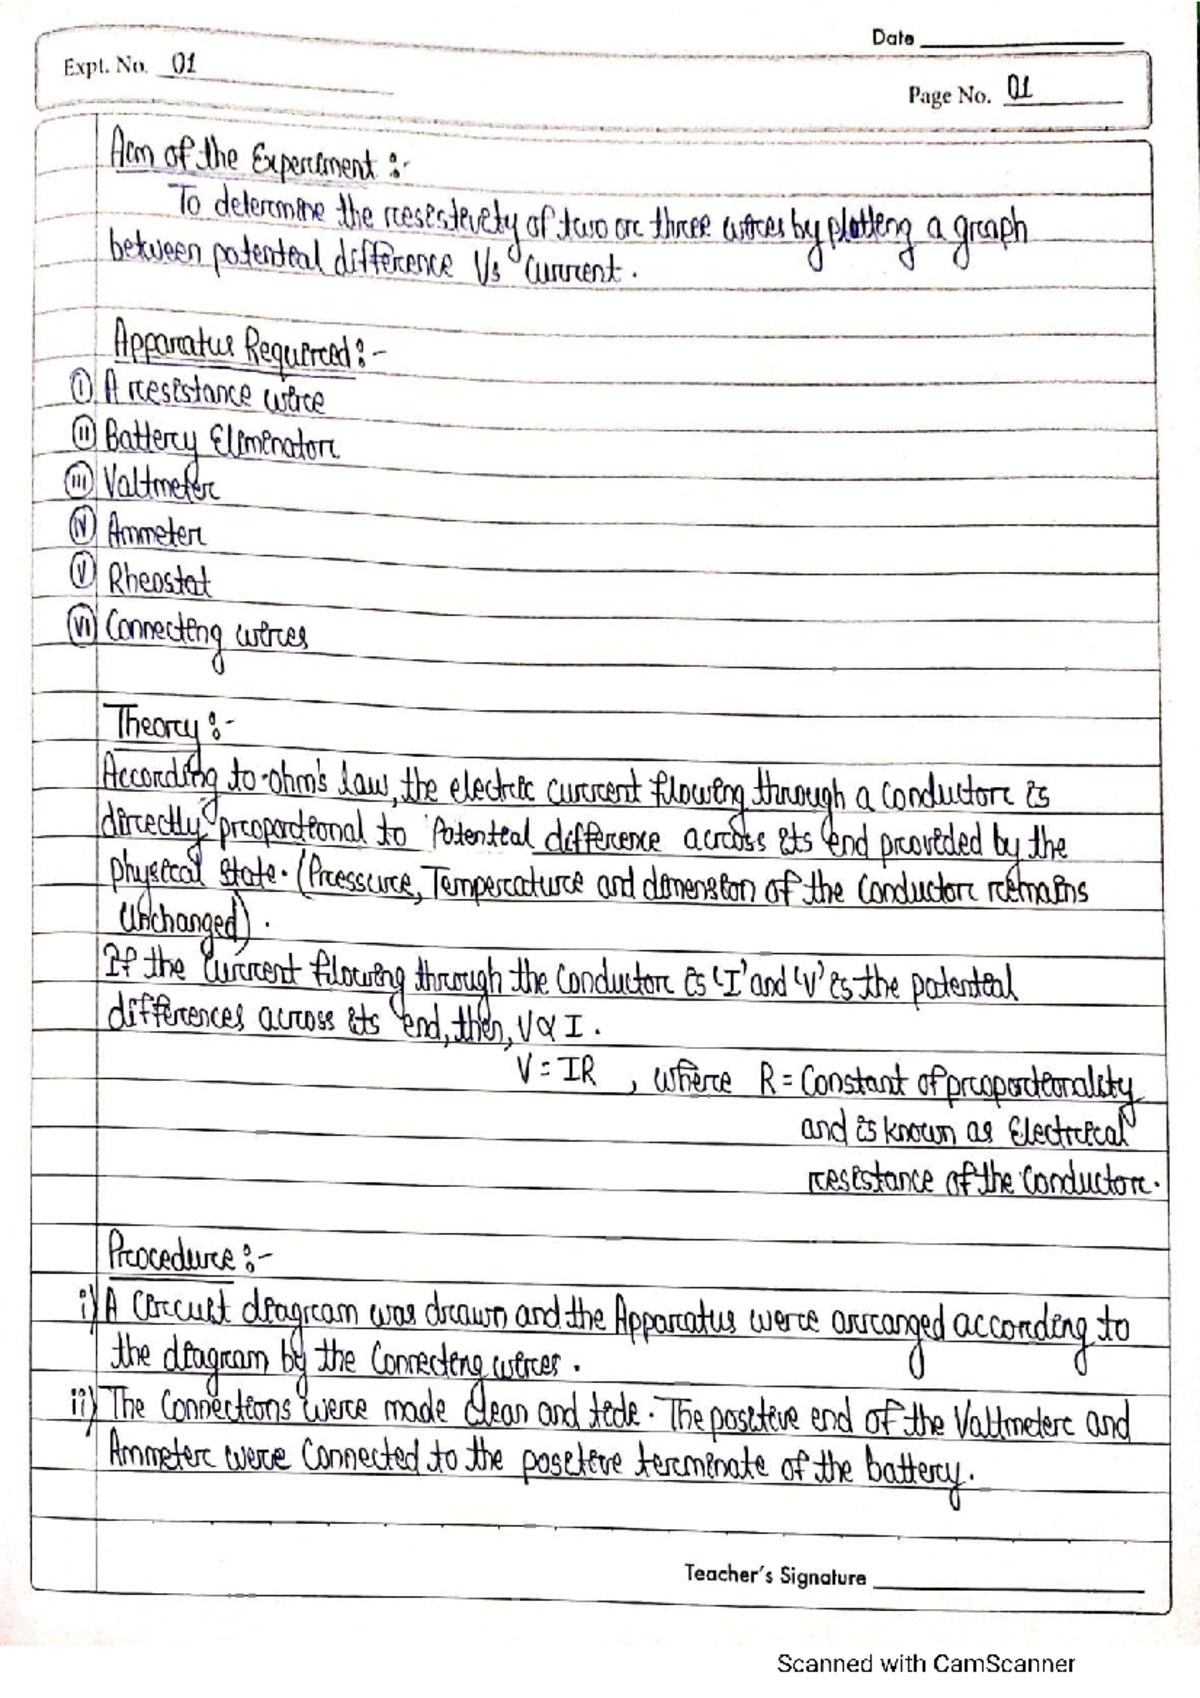 Date
Expt. No. 01
Page No. 01
Aim of the Experiment :-
To determine the resistivity of two or three wires by plotting a graph
between potential difference Vs current.
Apparatus Required :-
(I) A resistance wire
(II) Battery Eliminator
(III) Valtmeter
(IV) Ammeter
(V) Rheostat
(VI) Connecting wires
Theory :-
According to ohm's law, the electric current flowing through a conductor is
directly proportional to Potential difference across its end provided by the
physical state. (Pressure, Temperature and dimension of the conductor remains
Unchanged).
If the current flowing through the conductor is 'I' and 'V' is the potential
differences across its end, then, V∝I.
V = IR , where R = Constant of proportionality
and is known as Electrical
resistance of the conductor.
Procedure :-
i) A circuit diagram was drawn and the Apparatus were arranged according to
the diagram by the connecting wires.
ii) The connections were made clean and tide. The positive end of the Valtmeter and
Ammeter were connected to the positive terminate of the battery.
Teacher's Signature
Scanned with CamScanner